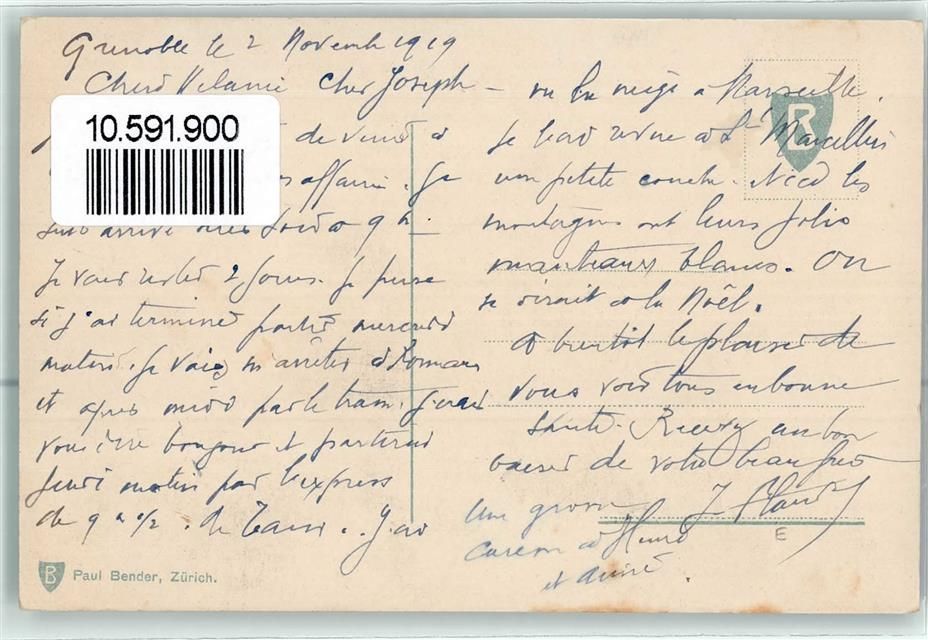 Grenoble le 2 Novemb 1919
Cher Joseph
10.591.900
de venir à
affaires. Je
suis arrivé hier soir à 9 h.
Je vais rester 2 jours. Je pense
si j'ai terminé partir mercredi
matin. Je vais m'arrêter à Romans
et après midi par le tram. J'irai
vous dire bonjour et partirai
Jeudi matin par l'express
de 9 h 1/2. de J'ai
vu la neige à Marseille.
Je bois à St Marcellin
une petite couche. Ici les
montagnes ont leurs jolis
manteaux blancs. On
se dirait à la Noël.
A bientôt le plaisir de
vous voir tous en bonne
santé. Recevez un bon
baiser de votre beau frère
J
Une grosse
caresse à
et
B
B
E
Paul Bender, Zürich.